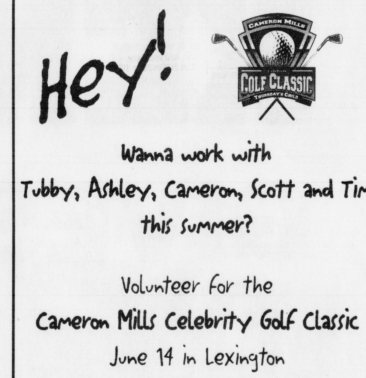 Hey!
CAMERON MILLS
GOLF CLASSIC
THURSDAY'S CHILD
Wanna work with
Tubby, Ashley, Cameron, Scott and Tim
this summer?
Volunteer for the
Cameron Mills Celebrity Golf Classic
June 14 in Lexington